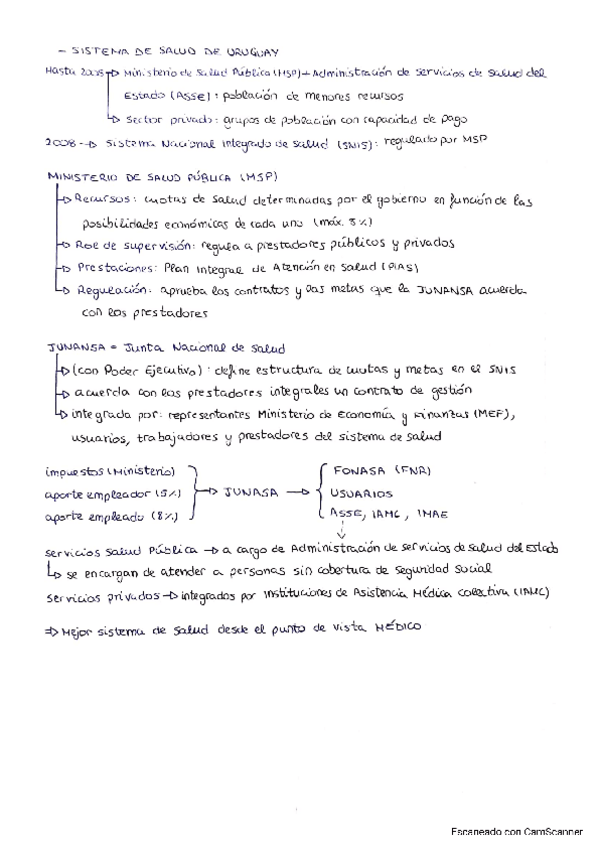 - SISTEMA DE SALUD DE URUGUAY
Hasta 2008 → Ministerio de Salud Pública (MSP) + Administración de servicios de salud del
Estado (ASSE): población de menores recursos
→ Sector privado: grupos de población con capacidad de pago
2008 → Sistema Nacional Integrado de Salud (SNIS): regulado por MSP
MINISTERIO DE SALUD PÚBLICA (MSP)
→ Recursos: cuotas de salud determinadas por el gobierno en función de las
posibilidades económicas de cada uno (máx. 8%)
→ Roe de supervisión: regula a prestadores públicos y privados
→ Prestaciones: Plan Integral de Atención en Salud (PIAS)
→ Regulación: aprueba los contratos y las metas que la JUNANSA acuerda
con los prestadores
JUNANSA = Junta Nacional de Salud
→ (con Poder Ejecutivo): define estructura de cuotas y metas en el SNIS
→ acuerda con los prestadores integrales un contrato de gestión
→ integrada por: representantes Ministerio de Economía y Finanzas (MEF),
usuarios, trabajadores y prestadores del sistema de salud
impuestos (Ministerio)
aporte empleador (5%) → JUNASA →
aporte empleado (8%)
FONASA (FNR)
USUARIOS
ASSE, IAMC, IMAE
servicios Salud Pública → a cargo de Administración de servicios de salud del Estado
→ se encargan de atender a personas sin cobertura de seguridad social
servicios privados → integrados por Instituciones de Asistencia Médica Colectiva (IAMC)
⇒ Mejor sistema de salud desde el punto de vista MÉDICO
Escaneado con CamScanner